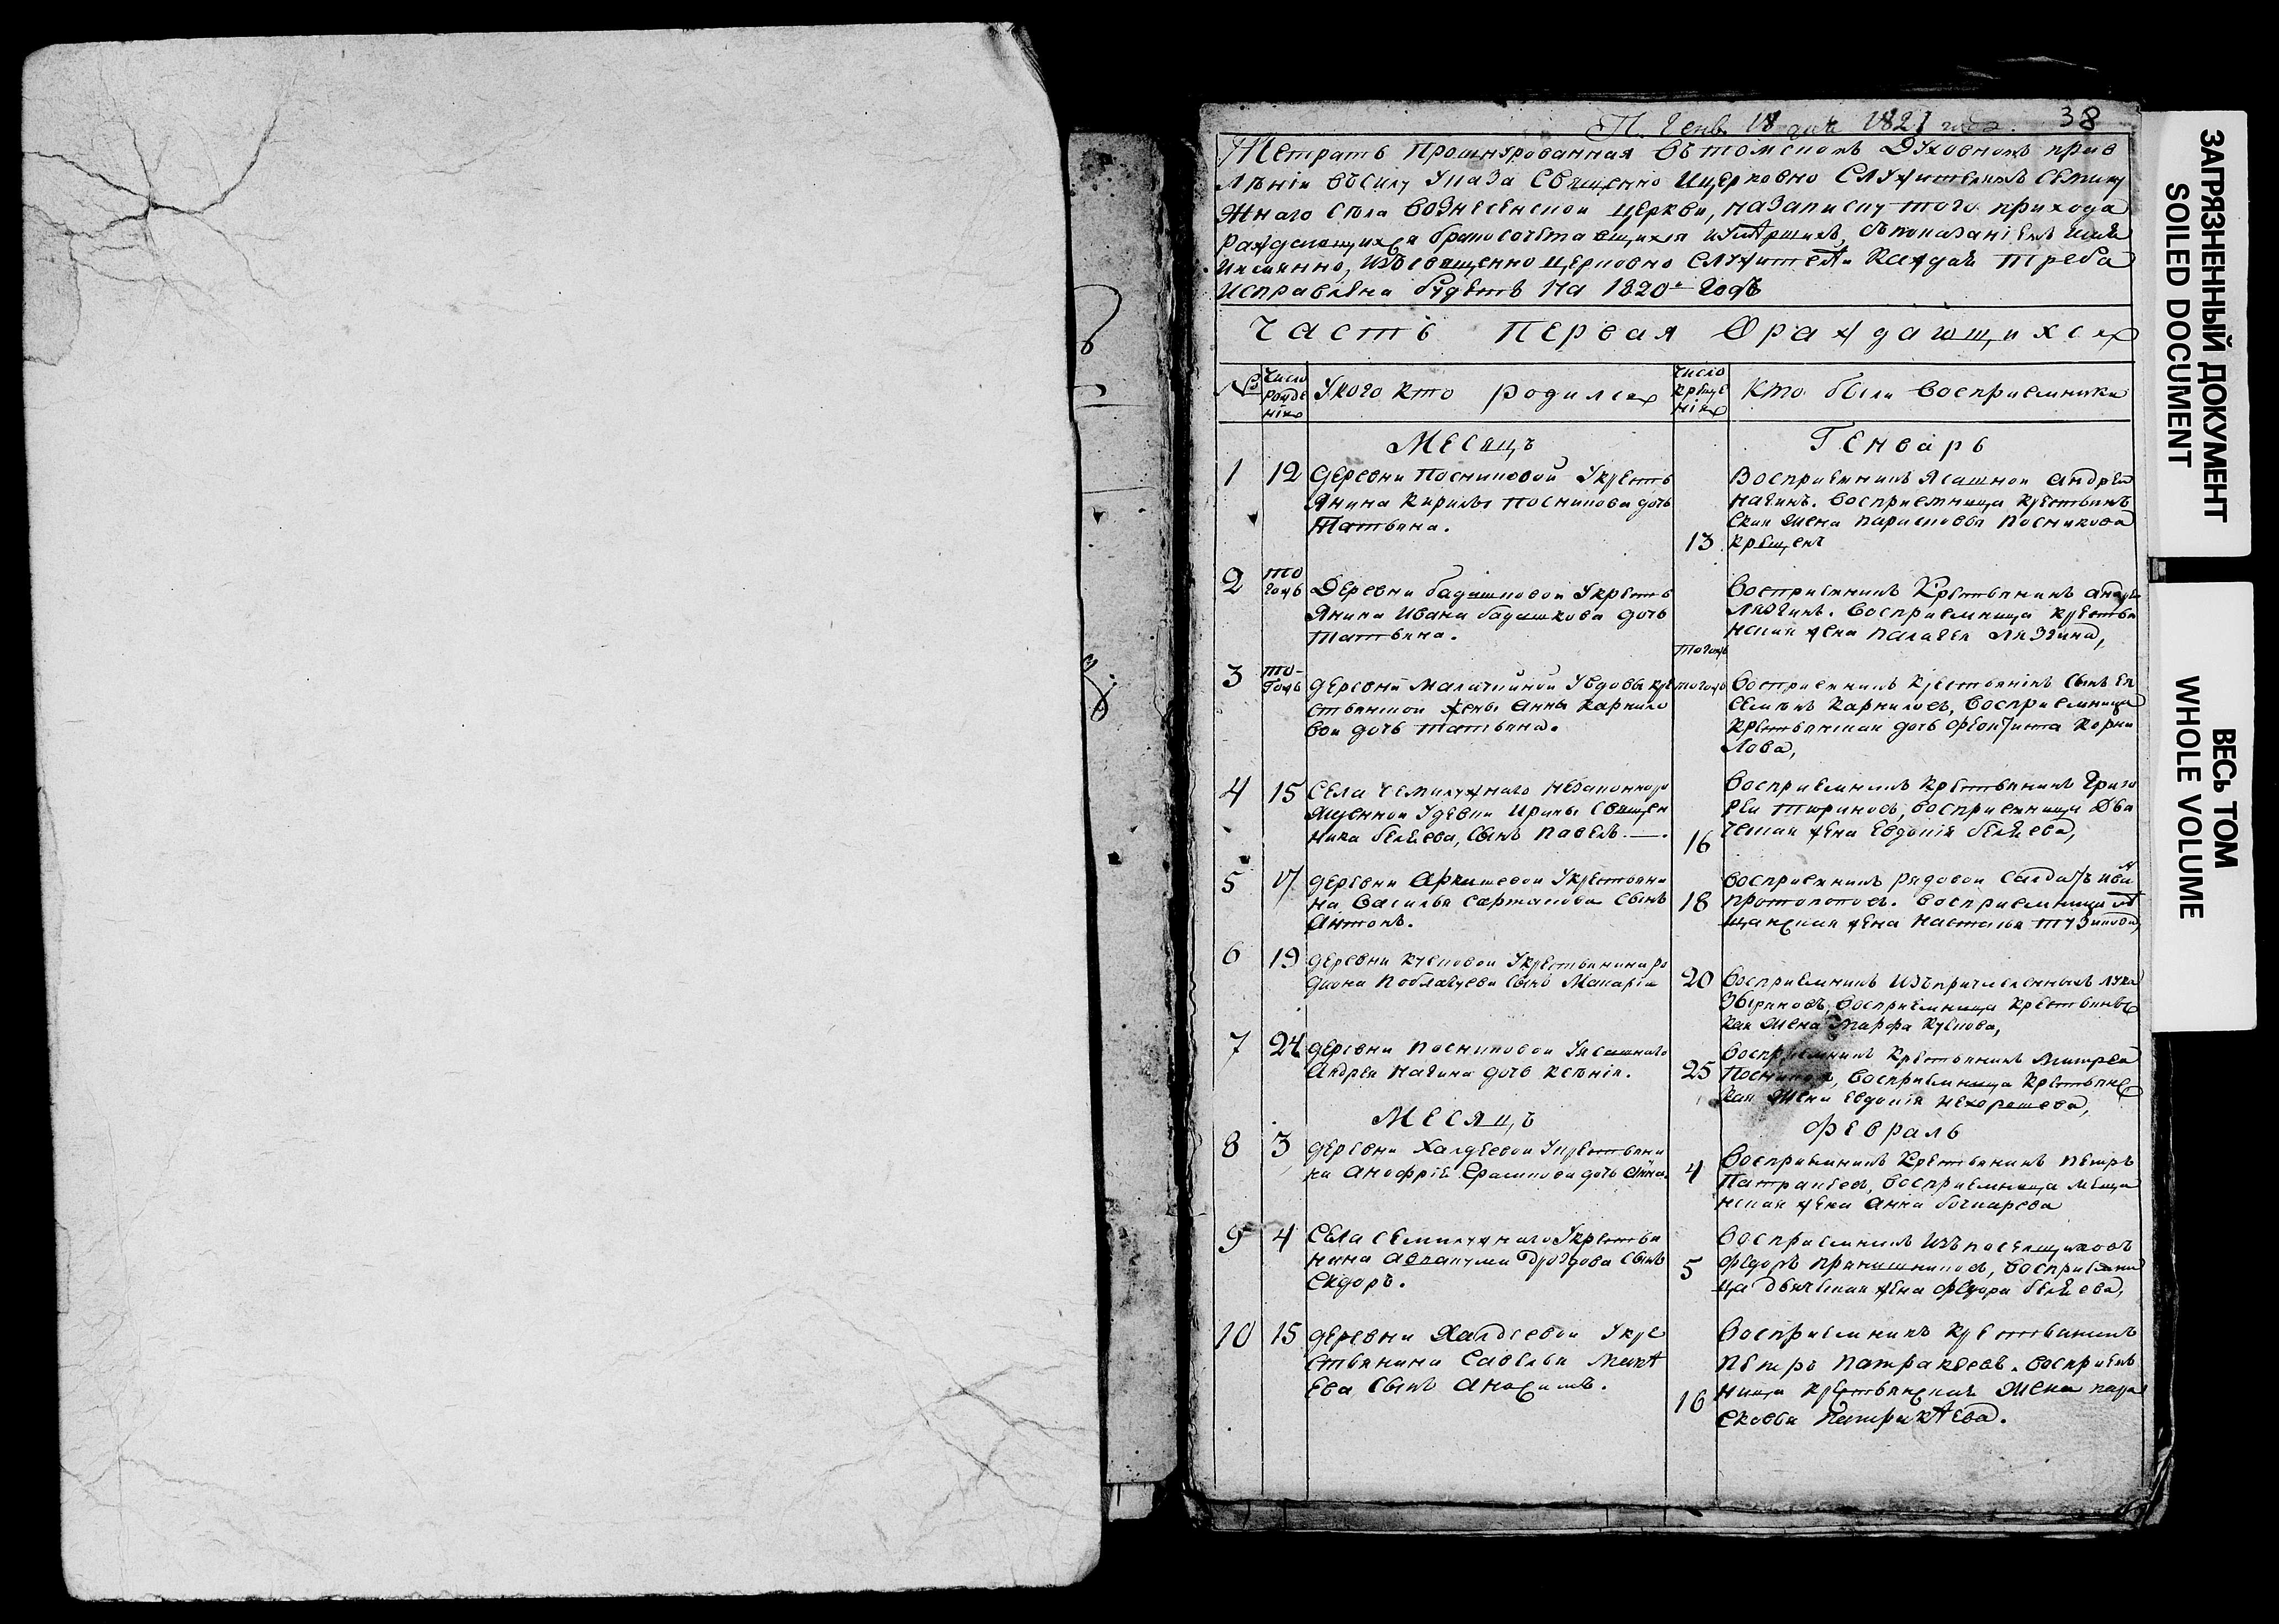 П. Генв. 18 дня 1821 года. 38
Тетрать Прошнурованная Въ томскомъ Духовномъ прав
лѣніи въсилу Указа Священно Ицерковно Служителямъ Семилу
жнаго села Вознесенской церкви, на Записку того прихода
раждающихся бракосочетающихся иумершихъ, съ показаніемъ
имянно, изъ священно церковно служителя каждая треба
исправлена будетъ На 1820й Годъ
Часть Первая О раждающихся
№ Число рожденія Укого кто родился Число крещенія Кто были Восприемники
Месяцъ Генварь
1 12 деревни Посниковой Укресть
янина Кирилы Посникова дочь
Татьяна.
13
Восприемникъ Ясашной андрей
нагинъ. восприемница крестьянъ
ская жена парасковья Посникова
крещенъ
2 того чь Деревни бадашковой Укресть
янина Ивана бадашкова дочь
татьяна.
тогочь
Восприемникъ Крестьянинъ
Лязгинъ. Восприемница крестья
нская жена палагея Лязгина,
3 тогочь деревни Малачиной Увдовы кре
стьянской жены Анны Карнило
вой дочь татьяна.
тогочь
Восприемникъ крестьянскій сынъ
Карниловъ, Восприемница
крестьянская дочь Феоктиста Корни
лова,
4 15 Села Семилужнаго Незаконноро
жденной Удевки Ирины Священ
ника беляева, сынъ павелъ.
16
Восприемникъ крестьянинъ Григо
рей тюриновъ, восприемница Дья
ческая жена Евдокія беляева,
5 17 деревни Аркашевой Укрестьяни
на Василья Сартакова Сынъ
Антонъ.
18
Восприемникъ рядовой салдатъ иванъ
протопоповъ. Восприемница мѣ
щанская жена Настасья тузикова,
6 19 деревни кусковой Укрестьянина ро
диона Поблагуева сынъ Макарій
20
Восприемникъ Изъпричисленныхъ лука
Зыряновъ, восприемница Крестьянъс
кая жена Марфа Кускова,
7 24 деревни Посниковой Уясашнаго
Андрея Нагина дочь ксѣнія.
25
Восприемникъ Крестьянинъ Митрей
Посниковъ, восприемница крестьянс
кая жена Евдокія Нехорошева,
Месяцъ Февраль
8 3 деревни Халдеевой Укрестьяни
на Анофрія Ерлыкова дочь Анна.
4
Восприемникъ Крестьянинъ петръ
Патракеевъ, восприемница меща
нская жена Анна бочкарева
9 4 Села семилужнаго Укрестья
нина Авакума Дроздова сынъ
Сидоръ.
5
Восприемникъ Изъпоселщиковъ
Федоръ пряншниковъ, восприемни
ца дьяческая жена Федора беляева,
10 15 деревни Халдеевой Укре
стьянина Савелья
ева сынъ Анисимъ.
16
Восприемникъ крестьянинъ
Петръ патракеевъ. восприем
ница крестьянская жена пара
сковья Патракѣева.
ЗАГРЯЗНЕННЫЙ ДОКУМЕНТ
SOILED DOCUMENT
ВЕСЬ ТОМ
WHOLE VOLUME